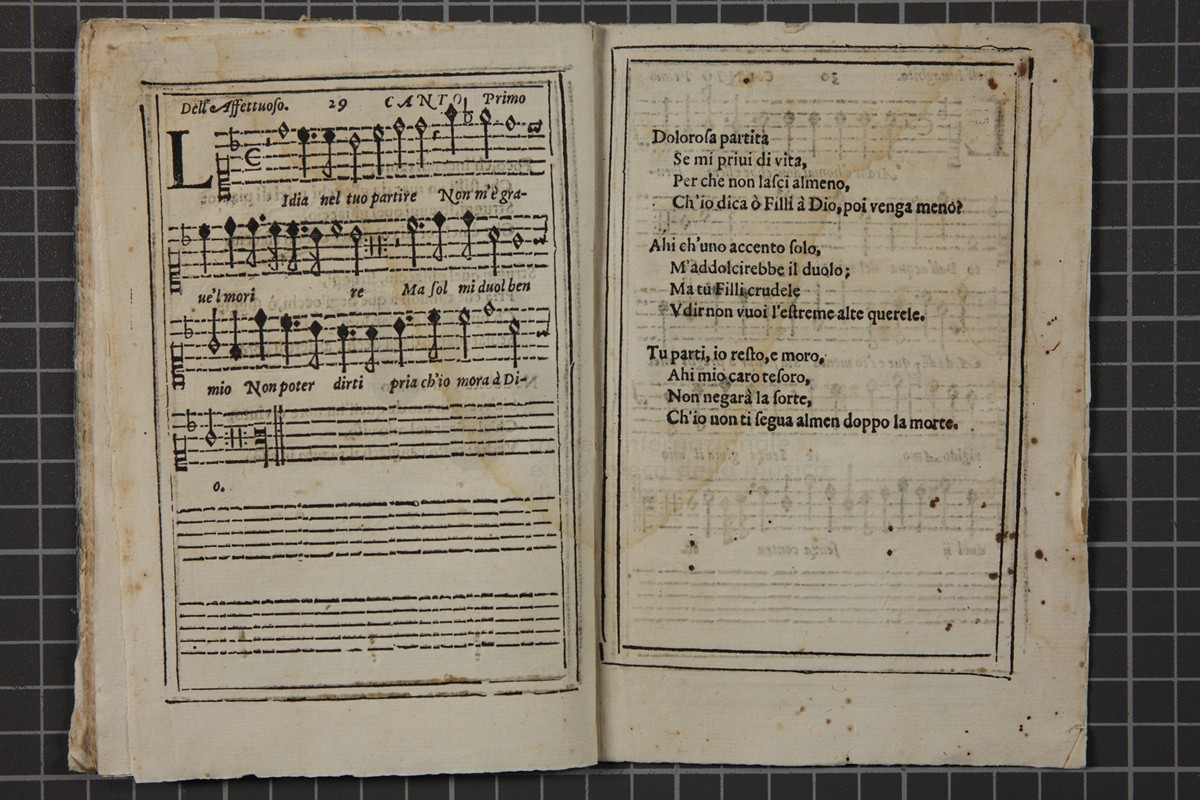 Dell'Affettuoso. 29 CANTO Primo
L
Idia nel tuo partire Non m'è gra-
ue'l mori re Ma sol mi duol ben
mio Non poter dirti pria ch'io mora à Di-
o.
Dolorosa partita
Se mi priui di vita,
Per che non lasci almeno,
Ch'io dica ò Filli à Dio, poi venga meno?
Ahi ch'uno accento solo,
M'addolcirebbe il duolo;
Ma tu Filli crudele
Vdir non vuoi l'estreme alte querele.
Tu parti, io resto, e moro,
Ahi mio caro tesoro,
Non negarà la sorte,
Ch'io non ti segua almen doppo la morte.